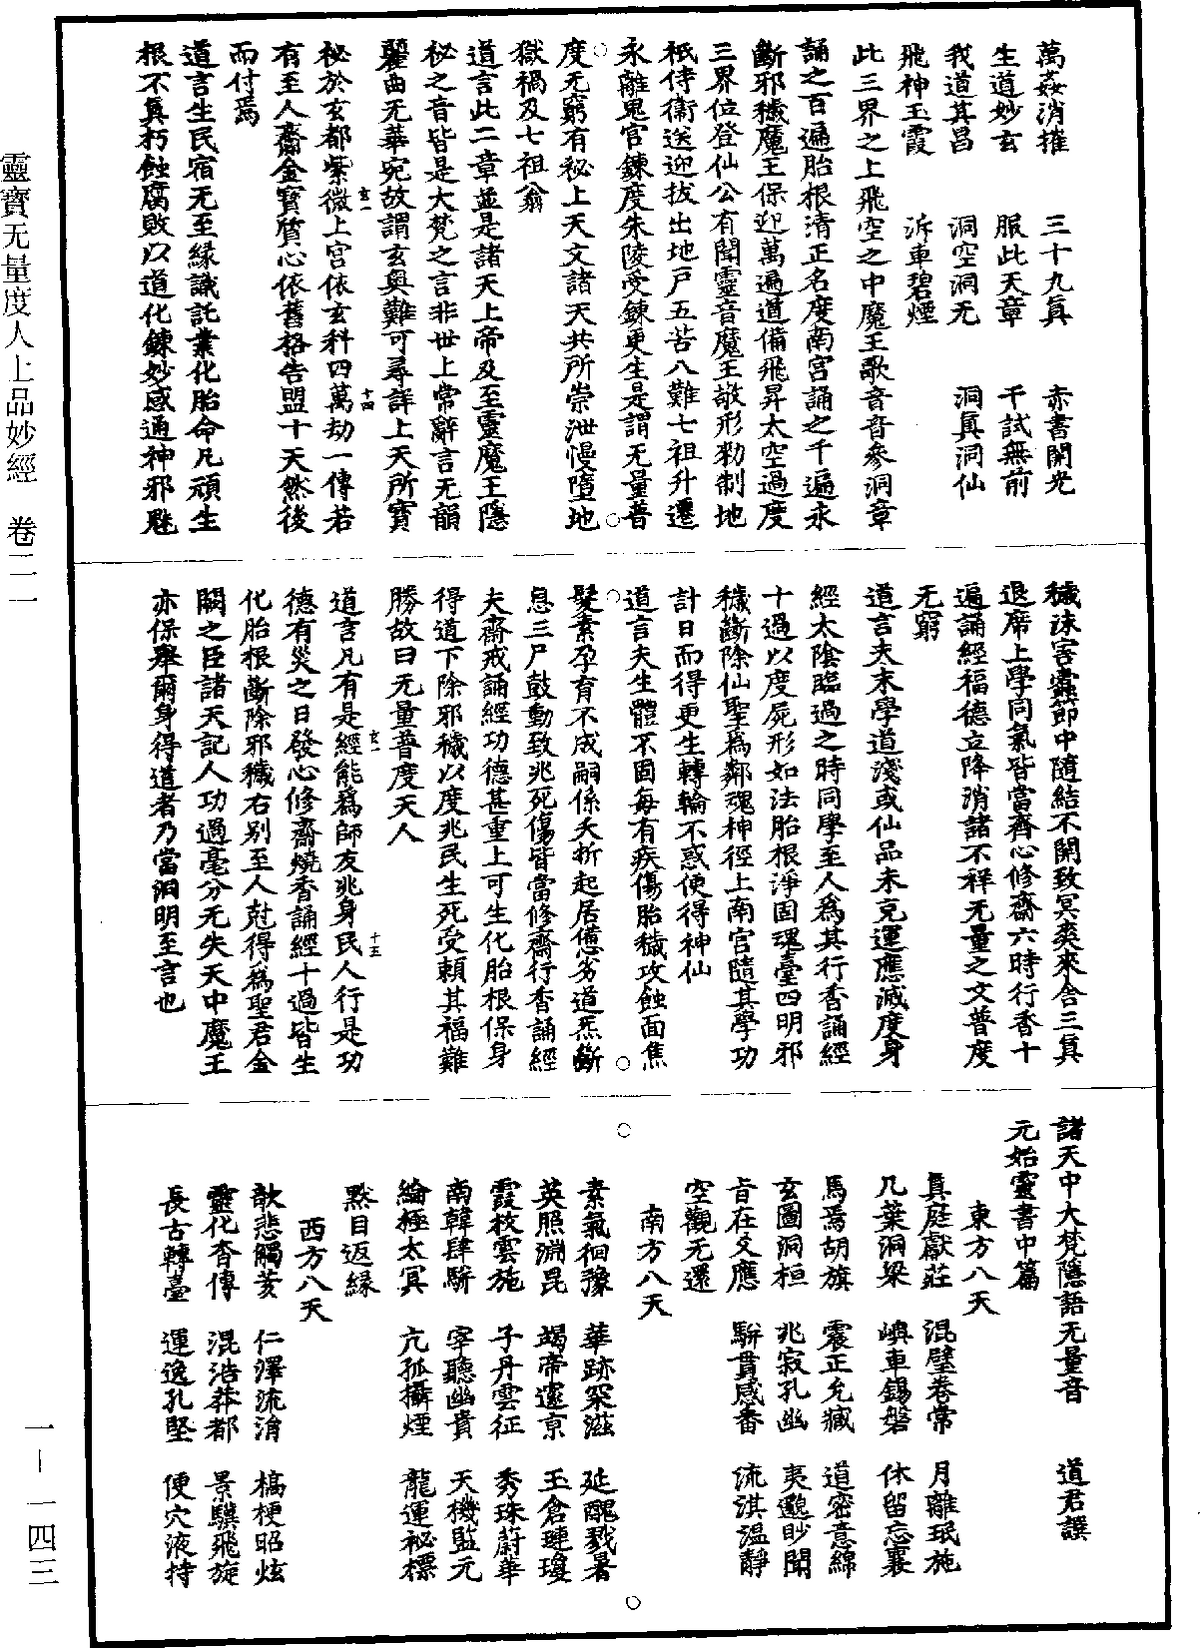 萬姦消摧　三十九真　赤書開光
生道妙玄　服此天章　千試無前
我道其昌　洞空洞无　洞真洞仙
飛神玉霞　泝車碧煙
此三界之上飛空之中魔王歌音音參洞章
誦之百遍胎根清正名度南宮誦之千遍永
斷邪穢魔王保迎萬遍道備飛昇太空過度
三界位登仙公有聞靈音魔王敬形勑制地
祇侍衞送迎拔出地戶五苦八難七祖升遷
永離鬼官鍊度朱陵受鍊更生是謂无量普
度无窮有祕上天文諸天共所崇泄慢墮地
獄禍及七祖翁
道言此二章並是諸天上帝及至靈魔王隱
祕之音皆是大梵之言非世上常辭言无韻
麗曲无華宛故謂玄奧難可尋詳上天所寶
祕於玄都紫微上宮依玄科四萬劫一傳若
有至人齎金寶質心依舊格告盟十天然後
而付焉
道言生民宿无至緣識託業化胎命凡頑生
根不真朽蝕腐敗以道化鍊妙感通神邪魅
穢沫害蠹節中隨結不開致冥奕來舍三真
退席上學同氣皆當齊心修齋六時行香十
遍誦經福德立降消諸不祥无量之文普度
无窮
道言夫末學道淺或仙品未克運應滅度身
經太陰臨過之時同學至人爲其行香誦經
十過以度屍形如法胎根淨固魂臺四明邪
穢斷除仙聖爲鄰魂神徑上南宮隨其學功
計日而得更生轉輪不惑便得神仙
道言夫生體不固每有疾傷胎穢攻蝕面焦
髮素孕育不成嗣係夭折起居憊劣道炁斷
息三尸鼓動致兆死傷皆當修齋行香誦經
夫齋戒誦經功德甚重上可生化胎根保身
得道下除邪穢以度兆民生死受賴其福難
勝故曰无量普度天人
道言凡有是經能爲師友兆身民人行是功
德有災之日發心修齋燒香誦經十過皆生
化胎根斷除邪穢右別至人尅得爲聖君金
闕之臣諸天記人功過毫分无失天中魔王
亦保舉爾身得道者乃當洞明至言也
諸天中大梵隱語无量音　道君譔
元始靈書中篇
東方八天
真庭獻莊　混璧卷常　月離珉施
几葉洞梁　嶼車錫磐　休留忘襄
馬焉胡旗　震正允臧　道密意綿
玄圖洞桓　兆寂孔幽　夷邈眇聞
旨在文應　駢貫感番　流淇温靜
空觀无還
南方八天
素氣徊豫　華跡罙滋　延醜戮暑
英照淵昆　竭帝邃京　玉倉璉瓊
霞枝雲施　子丹雲征　秀珠蔚華
南韓肆駢　宰聽幽貴　天機監元
綸極太冥　亢孤攝煙　龍運祕標
黙目返緣
西方八天
歆悲觸芰　仁澤流㳙　槁梗昭炫
靈化杳傳　混浩莽都　景驥飛旋
長古轉臺　運逸孔堅　便穴液持
靈寶无量度人上品妙經　卷二一
一—一四三
玄一
十四
玄一
十五